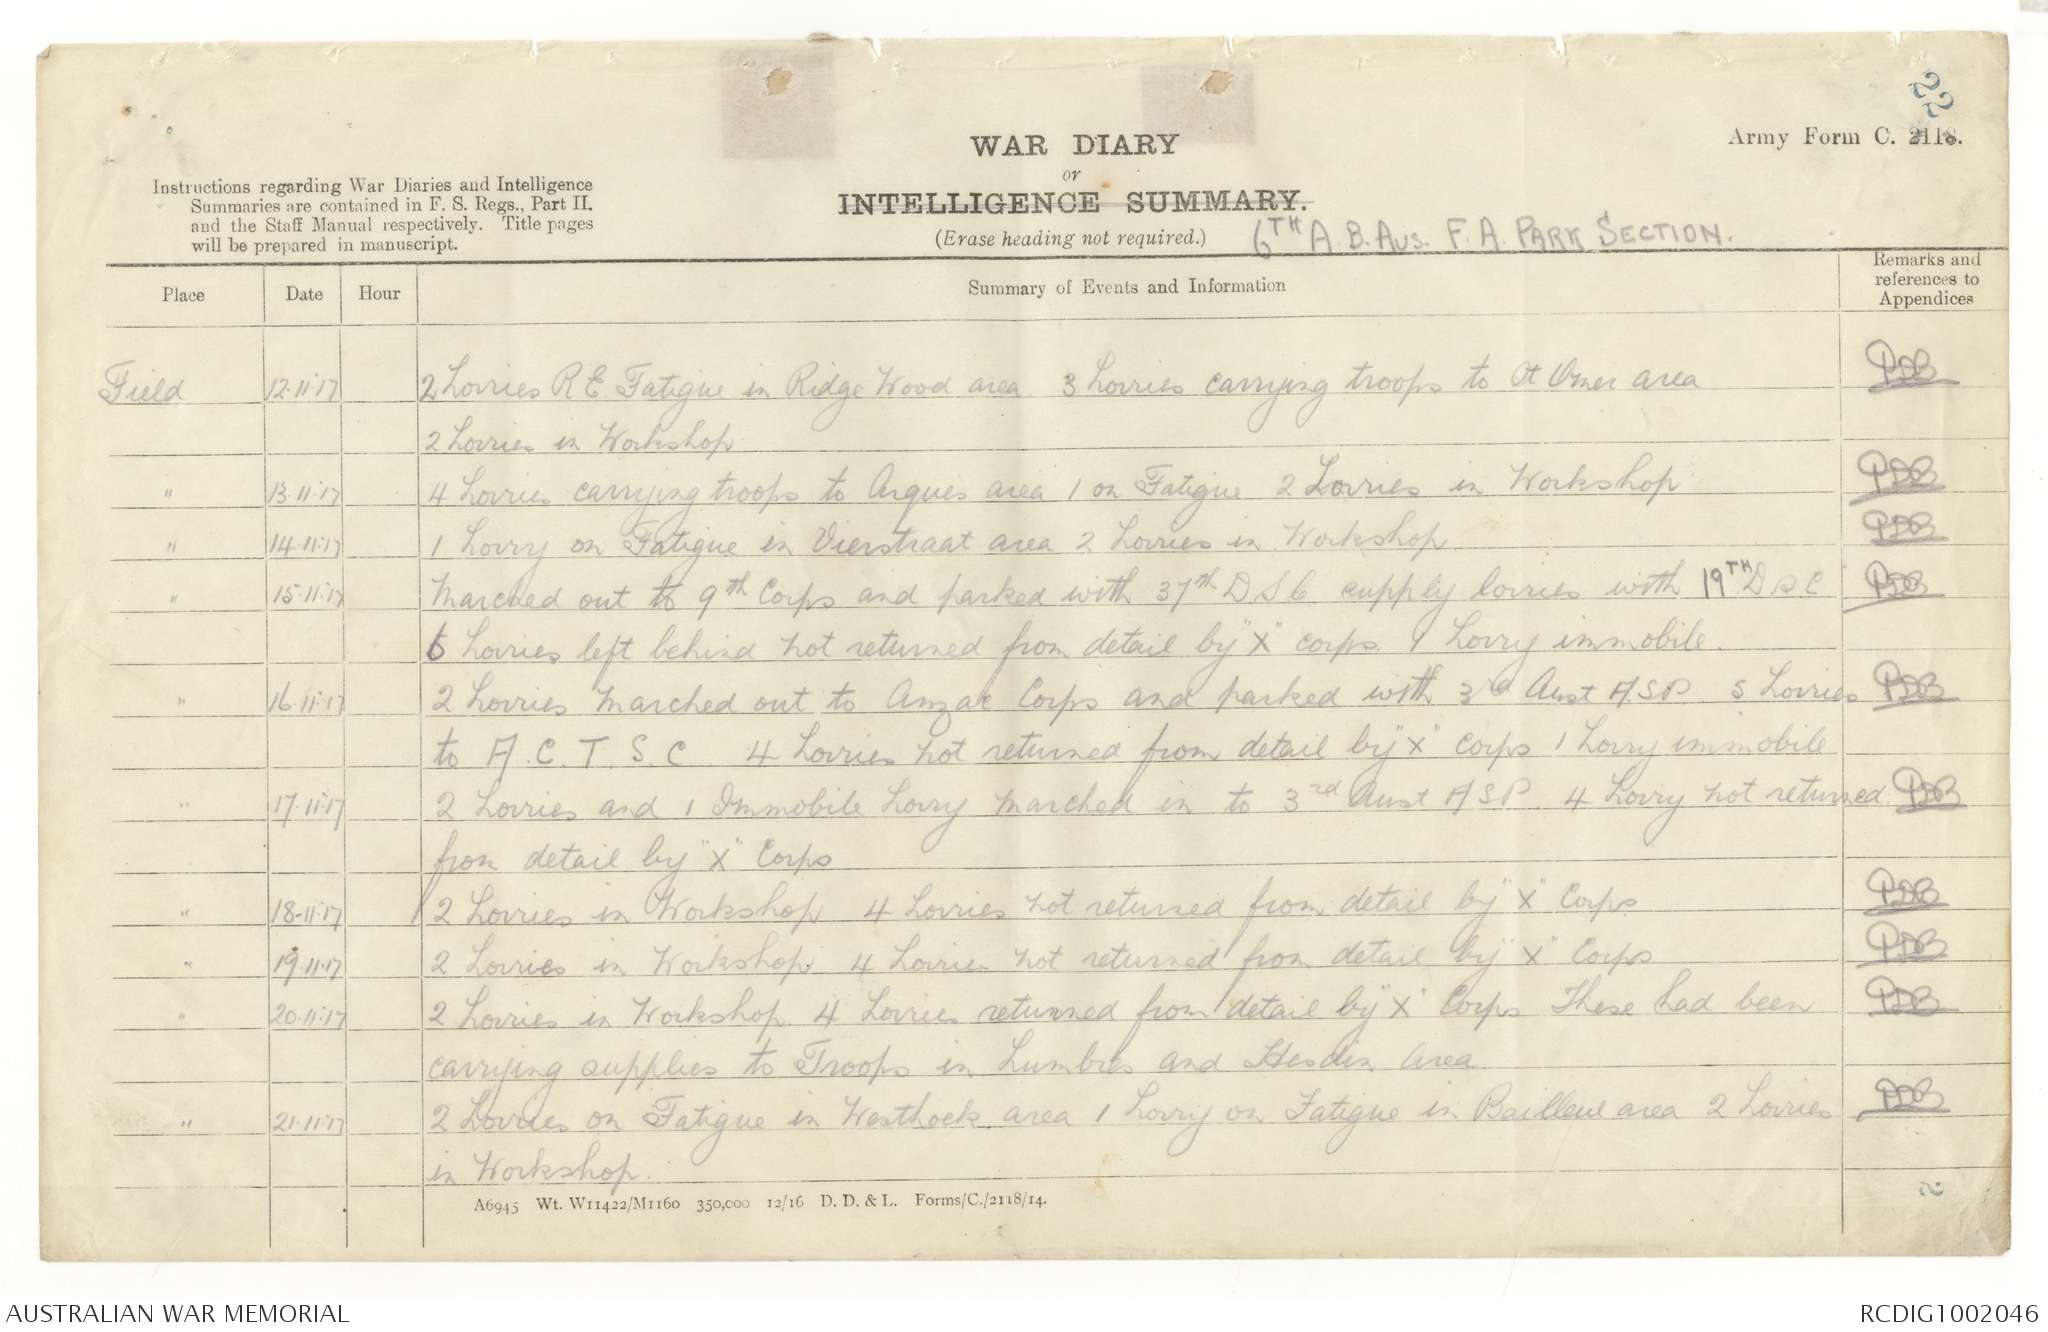 Army Form C. 2118.
WAR DIARY
or
INTELLIGENCE SUMMARY.
(Erase heading not required.)
6TH A. B. AUS. F. A. PARK SECTION.
Instructions regarding War Diaries and Intelligence
Summaries are contained in F. S. Regs., Part II.
and the Staff Manual respectively. Title pages
will be prepared in manuscript.
Place Date Hour Summary of Events and Information Remarks and references to Appendices
Field 12.11.17 2 Lorries R E Fatigue in Ridge Wood area 3 Lorries carrying troops to St Omer area PDB
2 Lorries in Workshop
" 13.11.17 4 Lorries carrying troops to Arques area 1 on Fatigue 2 Lorries in Workshop PDB
" 14.11.17 1 Lorry on Fatigue in Vierstraat area 2 Lorries in Workshop PDB
" 15.11.17 Marched out to 9th Corps and parked with 37th D.S.C. supply lorries with 19TH D S C PDB
6 Lorries left behind not returned from detail by "X" corps 1 Lorry immobile.
" 16.11.17 2 Lorries marched out to Anzac Corps and parked with 3rd Aust A.S.P. 5 Lorries PDB
to A. C. T. S. C. 4 Lorries not returned from detail by "X" Corps 1 Lorry immobile
" 17.11.17 2 Lorries and 1 Immobile Lorry marched in to 3rd Aust A S P. 4 Lorry not returned PDB
from detail by "X" Corps
" 18.11.17 2 Lorries in Workshop 4 Lorries not returned from detail by "X" Corps PDB
" 19.11.17 2 Lorries in Workshop. 4 Lorries not returned from detail by "X" Corps PDB
" 20.11.17 2 Lorries in Workshop. 4 Lorries returned from detail by "X" Corps These had been PDB
carrying supplies to Troops in Lumbres and Hesdin Area
" 21.11.17 2 Lorries on Fatigue in Westhoek area 1 Lorry on Fatigue in Bailleul area 2 Lorries PDB
in Workshop.
A6945 Wt. W11422/M1160 350,000 12/16 D. D. & L. Forms/C./2118/14.
AUSTRALIAN WAR MEMORIAL RCDIG1002046